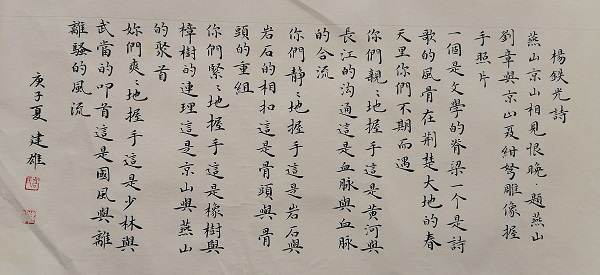 楊鉄光詩
燕山京山相見恨晚·題燕山
劉章與京山聂紺弩雕像握
手照片
一個是文學的脊梁一个是詩
歌的風骨在荆楚大地的春
天里你們不期而遇
你們親〻地握手這是黄河與
長江的沟通這是血脉與血脉
的合流
你們靜〻地握手這是岩石與
岩石的相扣這是骨頭與骨
頭的重組
你們緊〻地握手這是橡樹與
樟樹的連理這是京山與燕山
的聚首
妳們爽〻地握手這是少林與
武當的叩首這是國風與離
離騷的風流
庚子夏 建雄